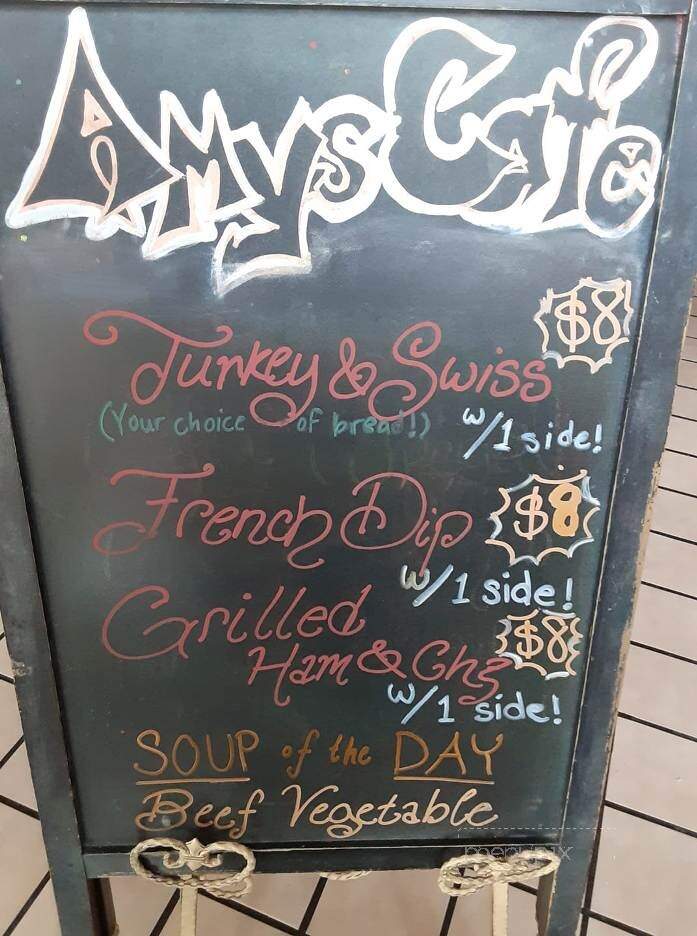 Amys Cafe
$8
Turkey & Swiss
(Your choice of bread!) w/1 side!
French Dip $8
w/1 side!
Grilled $8
Ham & Chz
w/1 side!
SOUP of the DAY
Beef Vegetable